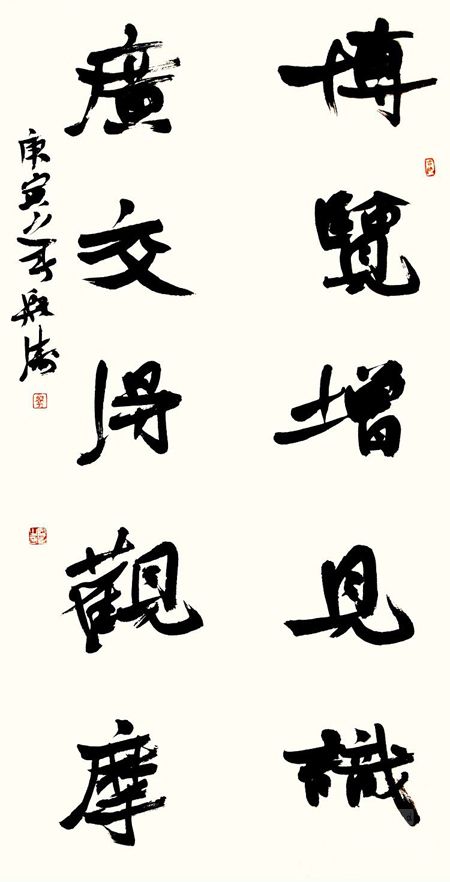 博覽增見識
廣交得觀摩
庚寅之春